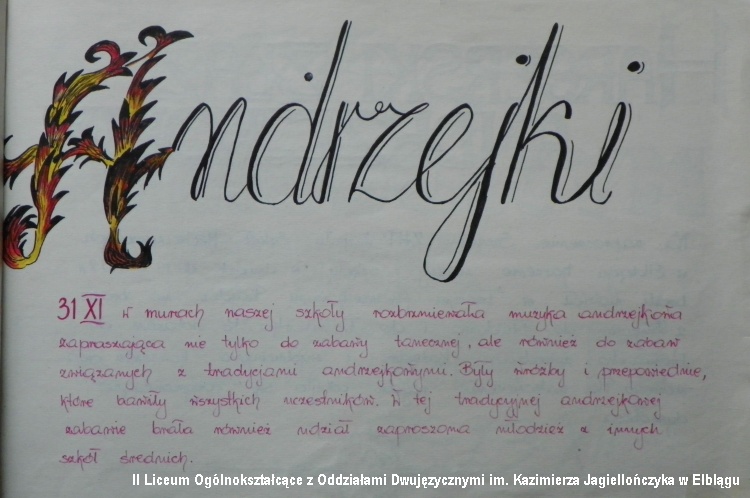 Andrzejki
31 XI w murach naszej szkoły rozbrzmiewała muzyka andrzejkowa
zapraszająca nie tylko do zabawy tanecznej, ale również do zabaw
związanych z tradycjami andrzejkowymi. Były wróżby i przepowiednie,
które bawiły wszystkich uczestników. W tej tradycyjnej andrzejkowej
zabawie brała również udział zaproszona młodzież z innych
szkół średnich.
II Liceum Ogólnokształcące z Oddziałami Dwujęzycznymi im. Kazimierza Jagiellończyka w Elblągu